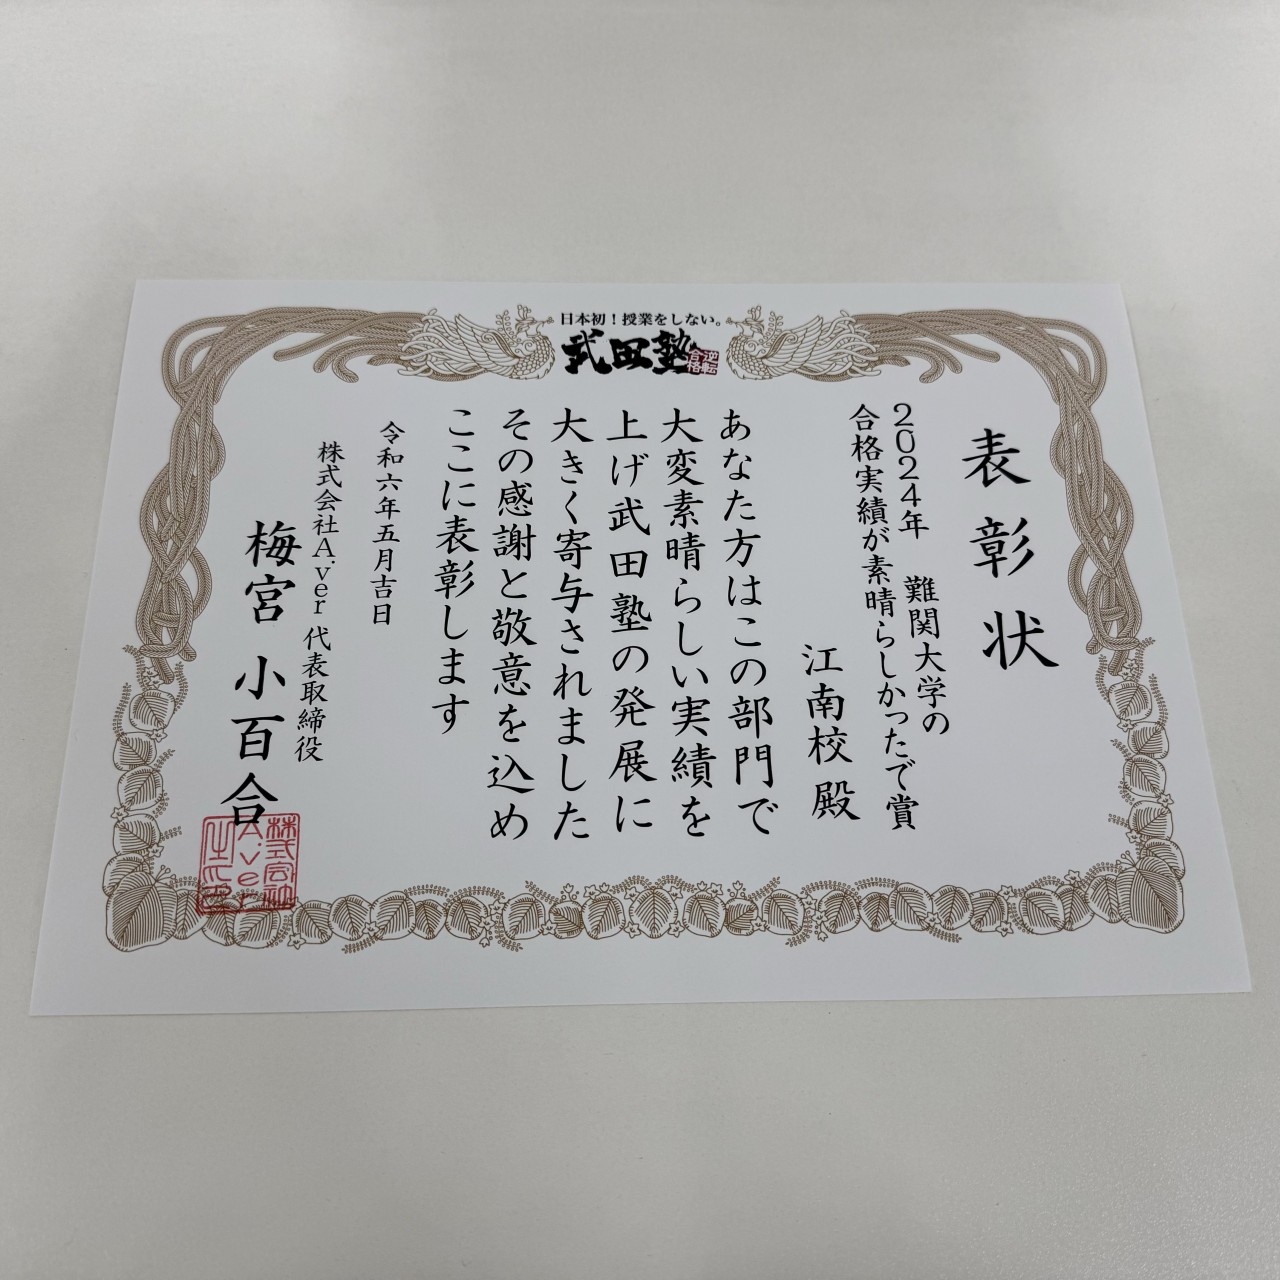 日本初！授業をしない。
武田塾
逆転
合格
表彰状
2024年 難関大学の
合格実績が素晴らしかったで賞
江南校殿
あなた方はこの部門で
大変素晴らしい実績を
上げ武田塾の発展に
大きく寄与されました
その感謝と敬意を込め
ここに表彰します
令和六年五月吉日
株式会社A.ver 代表取締役
梅宮 小百合
株式会社
A.ver
之印